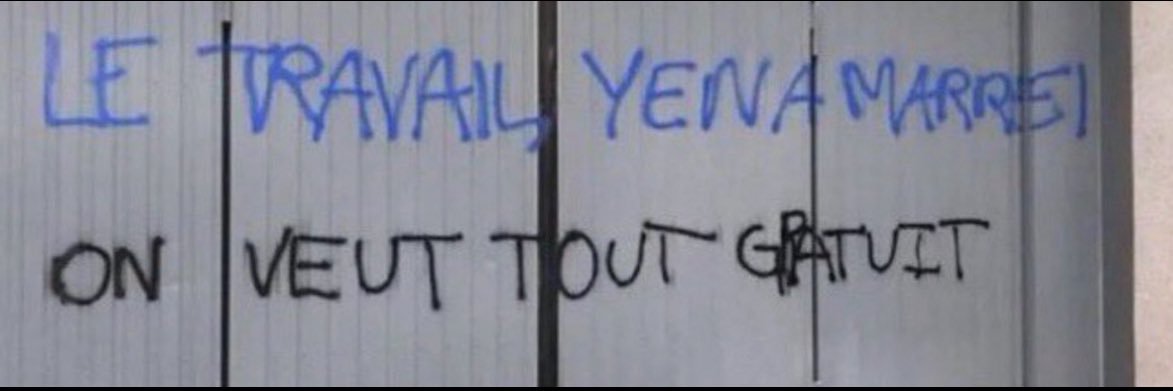 LE TRAVAIL, YEN A MARRE!
ON VEUT TOUT GRATUIT